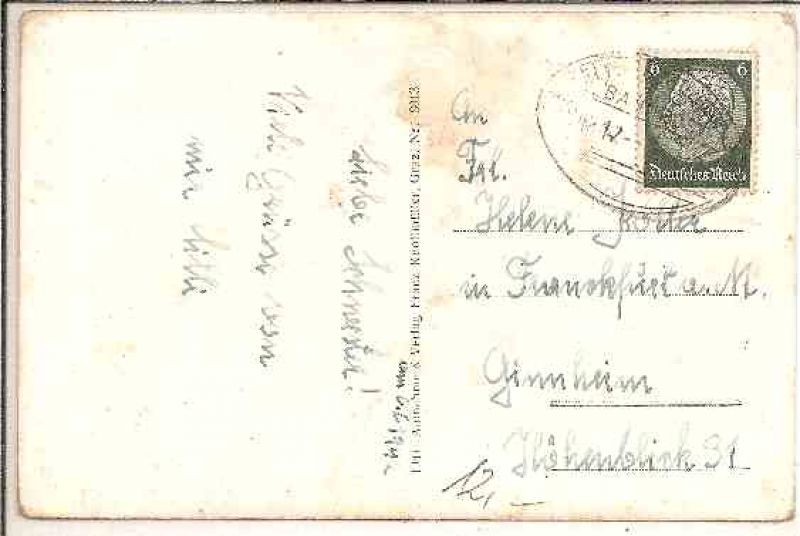 Liebe Schwester!
Viele Grüße von
mir
Orig.-Aufnahme & Verlag Franz Knollmüller, Graz, Nr.
An
Frl.
Helene
in Franckfurt a. M.
Ginnheim
Höhenblick 31
12,-
6 6
Deutsches Reich
BA